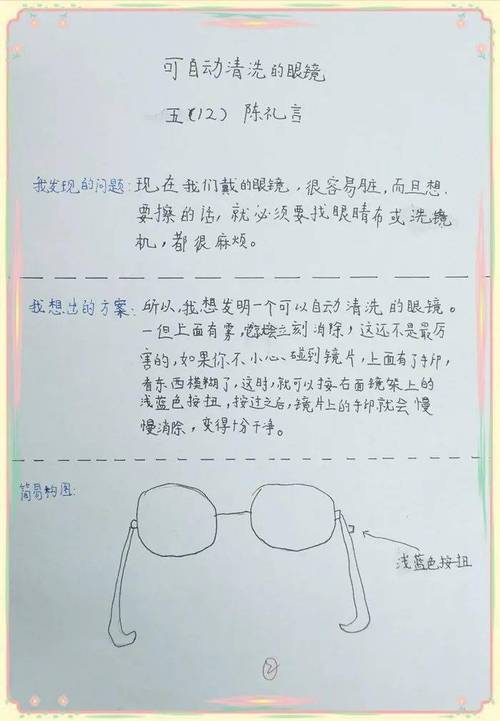 可自动清洗的眼镜
五(12) 陈礼言
我发现的问题:现在我们戴的眼镜,很容易脏,而且想
要擦的话,就必须要找眼睛布或洗镜
机,都很麻烦。
我想出的方案:所以,我想发明一个可以自动清洗的眼镜。
一但上面有雾,立刻消除,这还不是最厉
害的,如果你不小心碰到镜片,上面有了手印,
看东西模糊了,这时,就可以按右面镜架上的
浅蓝色按扭,按过之后,镜片上的手印就会慢
慢消除,变得十分干净。
简易构图:
浅蓝色按扭
2